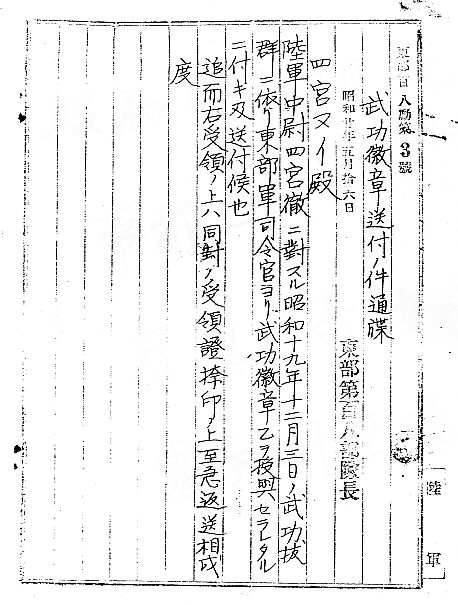 東部百八勤第3號
武功徽章送付ノ件通牒
昭和廿年五月拾六日
東部第百八部隊長
四宮ヌイ殿
陸軍中尉四宮徹ニ對スル昭和十九年十二月三日ノ武功抜
群ニ依リ東部軍司令官ヨリ武功徽章乙ヲ授與セラレタル
ニ付キ及送付候也
追而右受領ノ上ハ同封ノ受領證捺印ノ上至急返送相成
度
陸軍